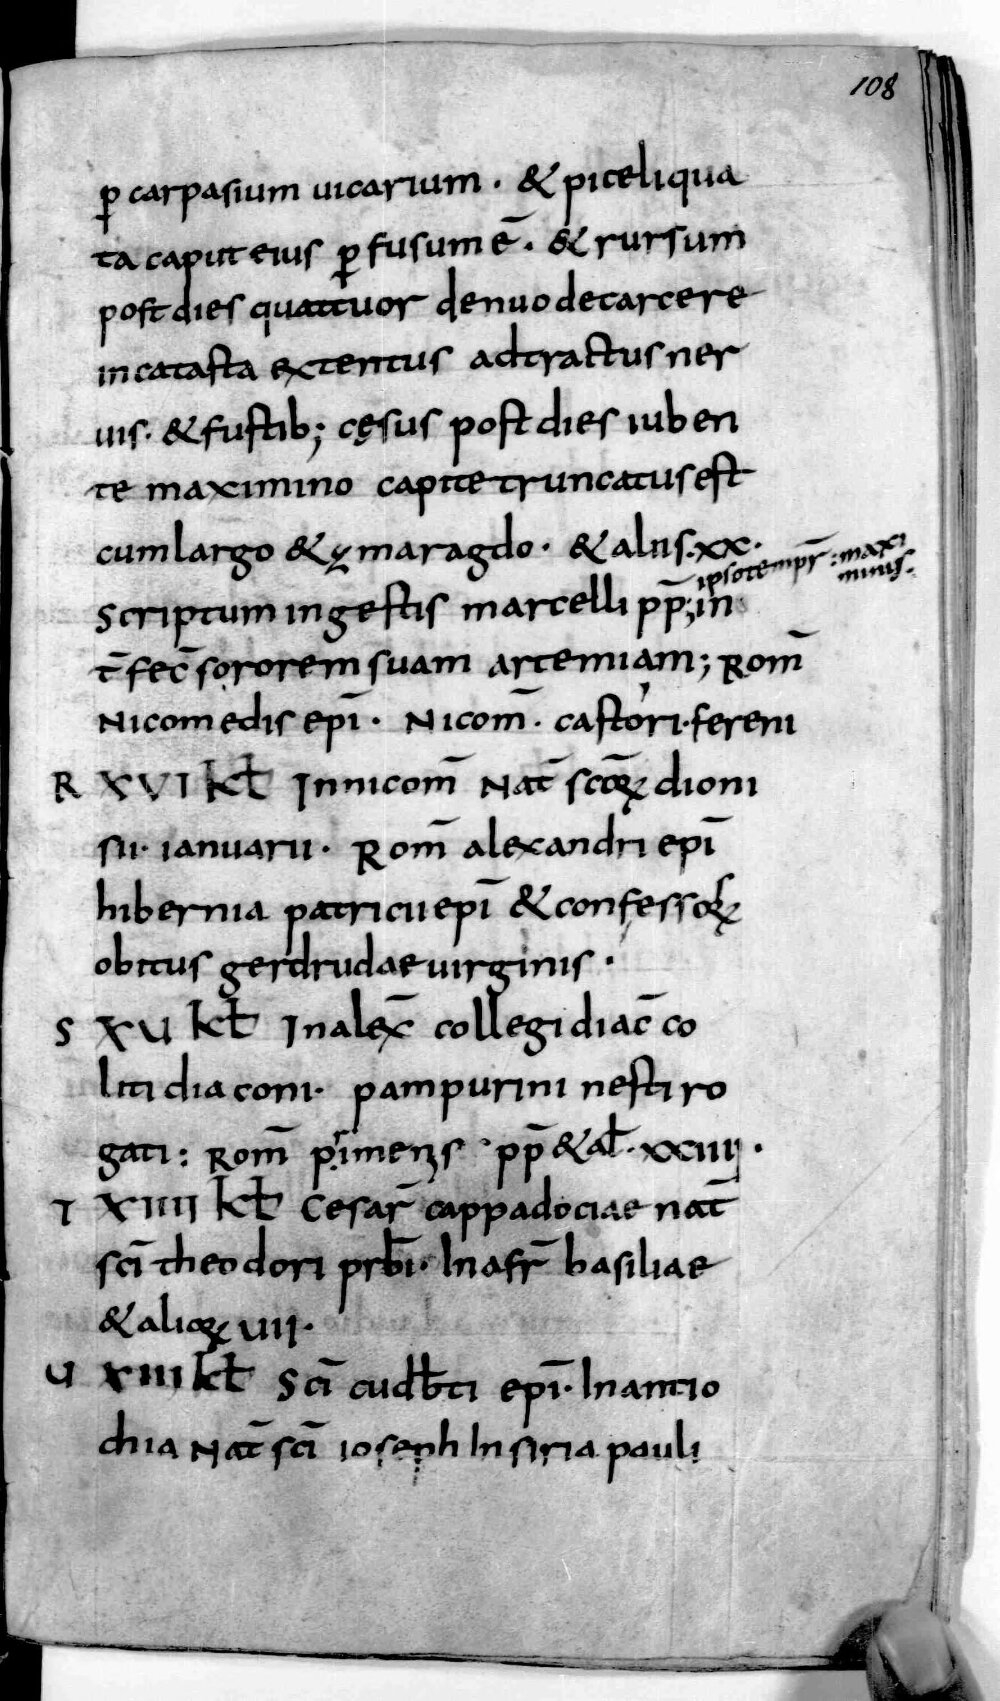 108
p̲ carpasium uicarium · & piceliqua
ta caput eius p̲ fusum ē · & rursum
post dies quattuor denuo decarcere
incatasta extentus adtractus ner
uis · & fustib; cęsus post dies iuben
te maximino capite truncatus est
cum largo & ymaragdo · & aliis · xx ·
ipso tempr̄ : maxi
minus ·
Scriptum in gestis marcelli pp̄; in
t̄ fec̄ sororem suam artemiam; Rom̄
Nicomedis epī · Nicom̄ · castori · fereni
R XVI kƚ In nicom̄ Nat̄ scōꝝ dioni
sii · ianuarii · Rom̄ alexandri epī
hibernia patricii epī & confessoꝝ
obitus gerdrudae uirginis ·
S XU kƚ In alex̄ collegi diac̄ co
liti diaconi · pampurini nesti ro
gati : Rom̄ pimenis pp̄ & aƚ · xxiiij ·
T XIIII kƚ Cesar̄ cappadociae nat̄
scī theodori prb̄i · In afr̄ basiliae
& alioꝝ uiii ·
U XIII kƚ Scī cudb̄ti epī · In antio
chia Nat̄ scī ioseph In siria pauli